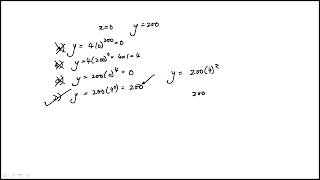 x=0 y=200
y = 4(0)^200 = 0
y = 4(200)^0 = 4x1 = 4
y = 200(0)^4 = 0
y = 200(4^0) = 200 y = 200(4)^x
200